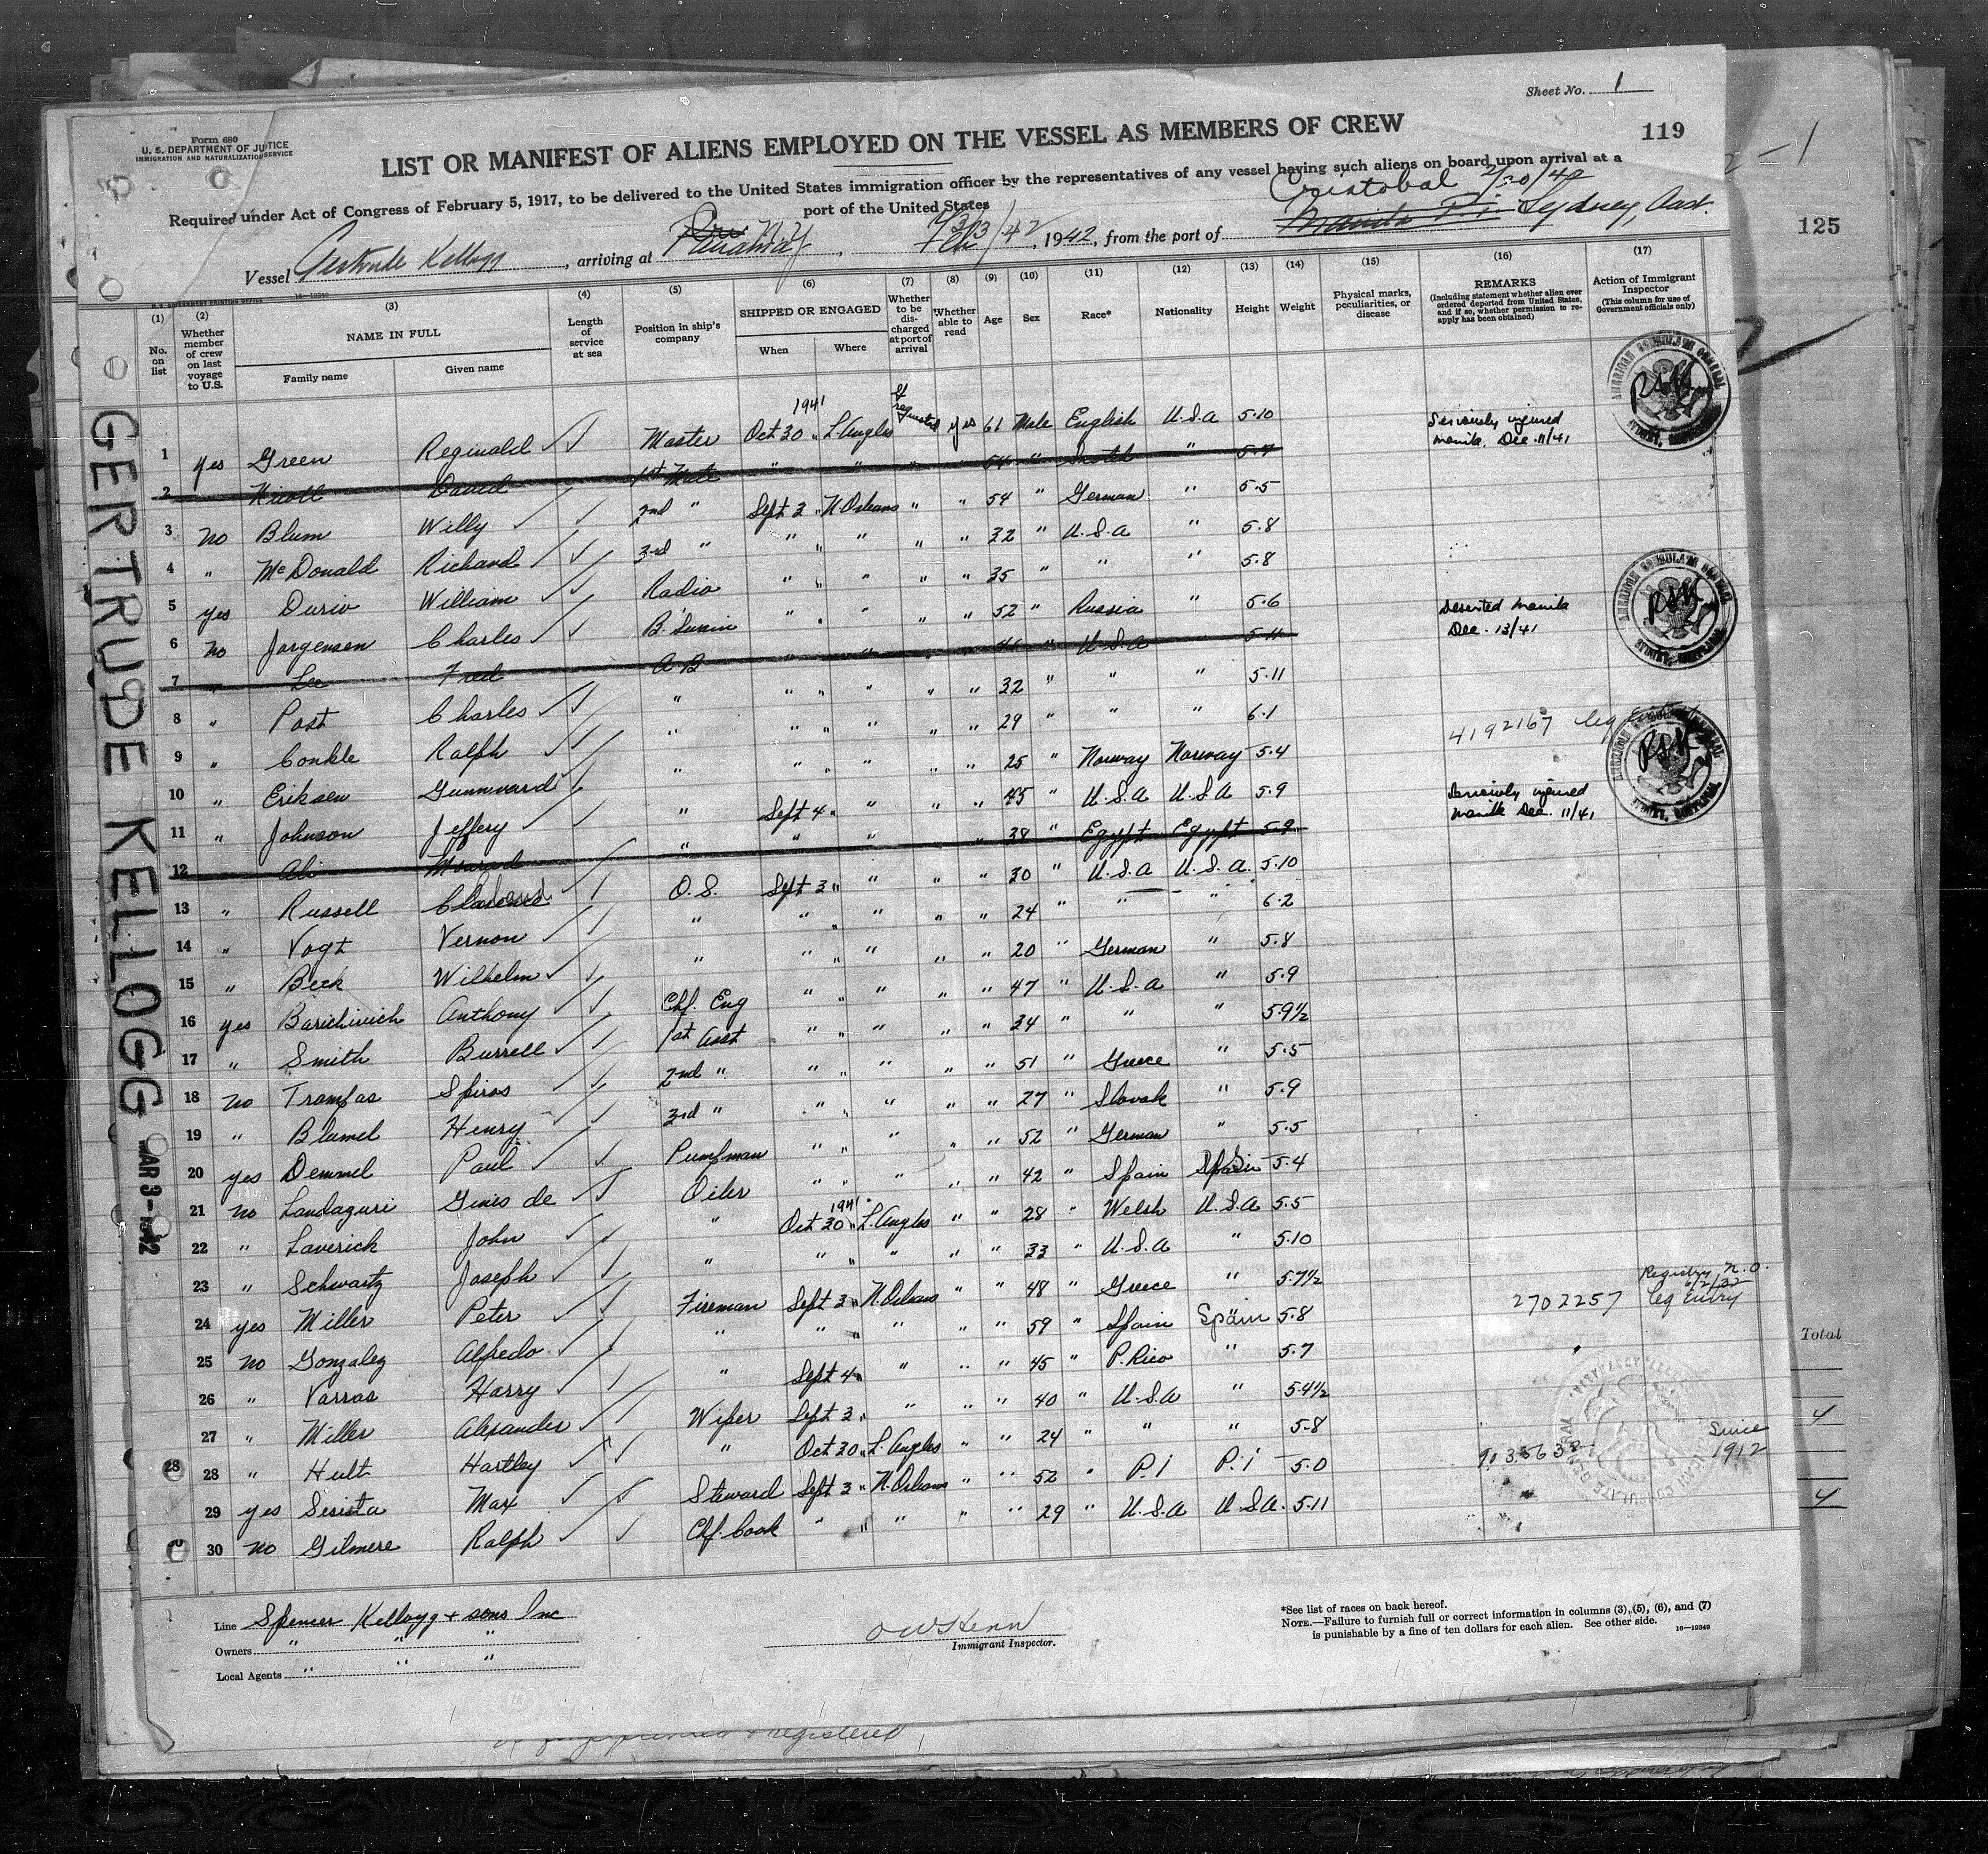 Sheet No. 1
119
Form 680
U. S. DEPARTMENT OF JUSTICE
IMMIGRATION AND NATURALIZATION SERVICE
LIST OR MANIFEST OF ALIENS EMPLOYED ON THE VESSEL AS MEMBERS OF CREW
Required under Act of Congress of February 5, 1917, to be delivered to the United States immigration officer by the representatives of any vessel having such aliens on board upon arrival at a
port of the United States
Cristobal 2/20/42
Vessel Gertrude Kellogg, arriving at N.Y., 1942, from the port of Manila P.I. Sydney, Aust.
125
(1) No. on list
(2) Whether member of crew on last voyage to U.S.
(3) NAME IN FULL
Family name Given name
(4) Length of service at sea
(5) Position in ship's company
(6) SHIPPED OR ENGAGED
When Where
(7) Whether to be discharged at port of arrival
(8) Whether able to read
(9) Age
(10) Sex
(11) Race*
(12) Nationality
(13) Height
(14) Weight
(15) Physical marks, peculiarities, or disease
(16) REMARKS
(Including statement whether alien ever ordered deported from United States, and if so, whether permission to reapply has been obtained)
(17) Action of Immigrant Inspector
(This column for use of Government officials only)
1 yes Green Reginald Master 1941 Oct 30 " L. Angles If requested yes 61 Male English U.S.A 5.10
2 Nicoll David 1st Mate " " " 54 " Scotch " 5.7 Seriously injured Manila, Dec. 11/41
3 no Blum Willy 2nd " Sept 3 " N. Orleans " " 54 " German " 5.5
4 " McDonald Richard 3rd " " " " " " 32 " U.S.A " 5.8
5 yes Durio William Radio " " " " " 35 " " " 5.8
6 no Jorgensen Charles " " " " " 52 " Russia " 5.6
7 " Lee Fred A B " " " " U.S.A " 5.11 Deserted Manila Dec. 13/41
8 " Post Charles " " " " " " 32 " " " 5.11
9 " Conkle Ralph " " " " " " 29 " " " 6.1
10 " Eriksen Gunnvard " " " " " " 25 " Norway Norway 5.4 4192167
11 " Johnson Jeffery " Sept 4 " " " " 45 " U.S.A U.S.A 5.9
12 Ali " " " " " 38 " Egypt Egypt 5.9 Seriously injured Manila Dec. 11/41
13 " Russell O.S. Sept 3 " " " " 30 " U.S.A U.S.A. 5.10
14 " Vogt Vernon " " " " " " 24 " " " 6.2
15 " Beck Wilhelm " " " " " " 20 " German " 5.8
16 yes Barichivich Anthony Chf. Eng " " " " " 47 " U.S.A " 5.9
17 " Smith Burrell 1st Asst " " " " " 34 " " " 5.9½
18 no Trampas Spiros 2nd " " " " " " 51 " Greece " 5.5
19 " Blumel Henry 3rd " " " " " " 27 " Slovak " 5.9
20 yes Demmel Paul Pumpman " " " " " 52 " German " 5.5
21 no Landaguri Gines de Oiler " " " " " 42 " Spain Spain 5.4
22 " Laverick John " 1941 Oct 30 " L. Angles " " 28 " Welsh U.S.A 5.5
23 " Schwartz Joseph " " " " " " 33 " U.S.A " 5.10
24 yes Miller Peter Fireman Sept 3 " N. Orleans " " 48 " Greece " 5.7½
25 no Gonzalez Alfredo " " " " " " 59 " Spain Spain 5.8 2702257 Registry N.O. 6/2/32 leg Entry
26 " Varras Harry " Sept 4 " " " " 45 " P. Rico " 5.7
27 " Miller Alexander Wiper Sept 3 " " " " 40 " U.S.A " 5.4½
28 " Hult Hartley " Oct 30 " L. Angles " " 24 " " " 5.8
29 yes Serista Max Steward Sept 3 " N. Orleans " " 52 " P.I P.I 5.0 Since 1912
30 no Gilmere Ralph Chf. Cook " " " " " 29 " U.S.A U.S.A. 5.11
GERTRUDE KELLOGG
MAR 3 - 1942
Total
4
4
Line Spencer Kellogg + sons Inc
Owners " " "
Local Agents " " "
Immigrant Inspector.
*See list of races on back hereof.
NOTE.—Failure to furnish full or correct information in columns (3), (5), (6), and (7)
is punishable by a fine of ten dollars for each alien. See other side.
16—19349